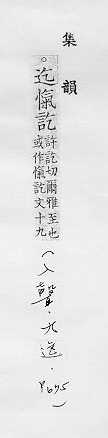 集韻
。迄愾訖許訖切爾雅至也
或作愾訖文十九
(入聲·九迄·